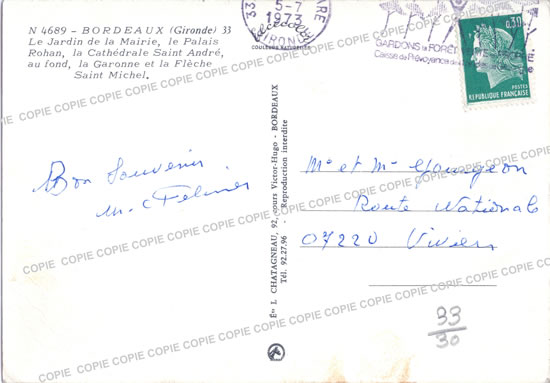 N 4689 - BORDEAUX (Gironde) 33
Le Jardin de la Mairie, le Palais
Rohan, la Cathédrale Saint André,
au fond, la Garonne et la Flèche
Saint Michel.
COULEURS NATURELLES
33
5-7
1973
GIRONDE
GARDONS la FORÊT
Caisse de Prévoyance
0,30
POSTES
REPUBLIQUE FRANÇAISE
Bon Souvenir
Ets L. CHATAGNEAU, 92, cours Victor-Hugo - BORDEAUX
Tél. 92.27.96 - Reproduction interdite
Mr et Me Gourgeon
Route Nationale
07220 Viviers
33
30
COPIE COPIE COPIE COPIE COPIE COPIE COPIE COPIE